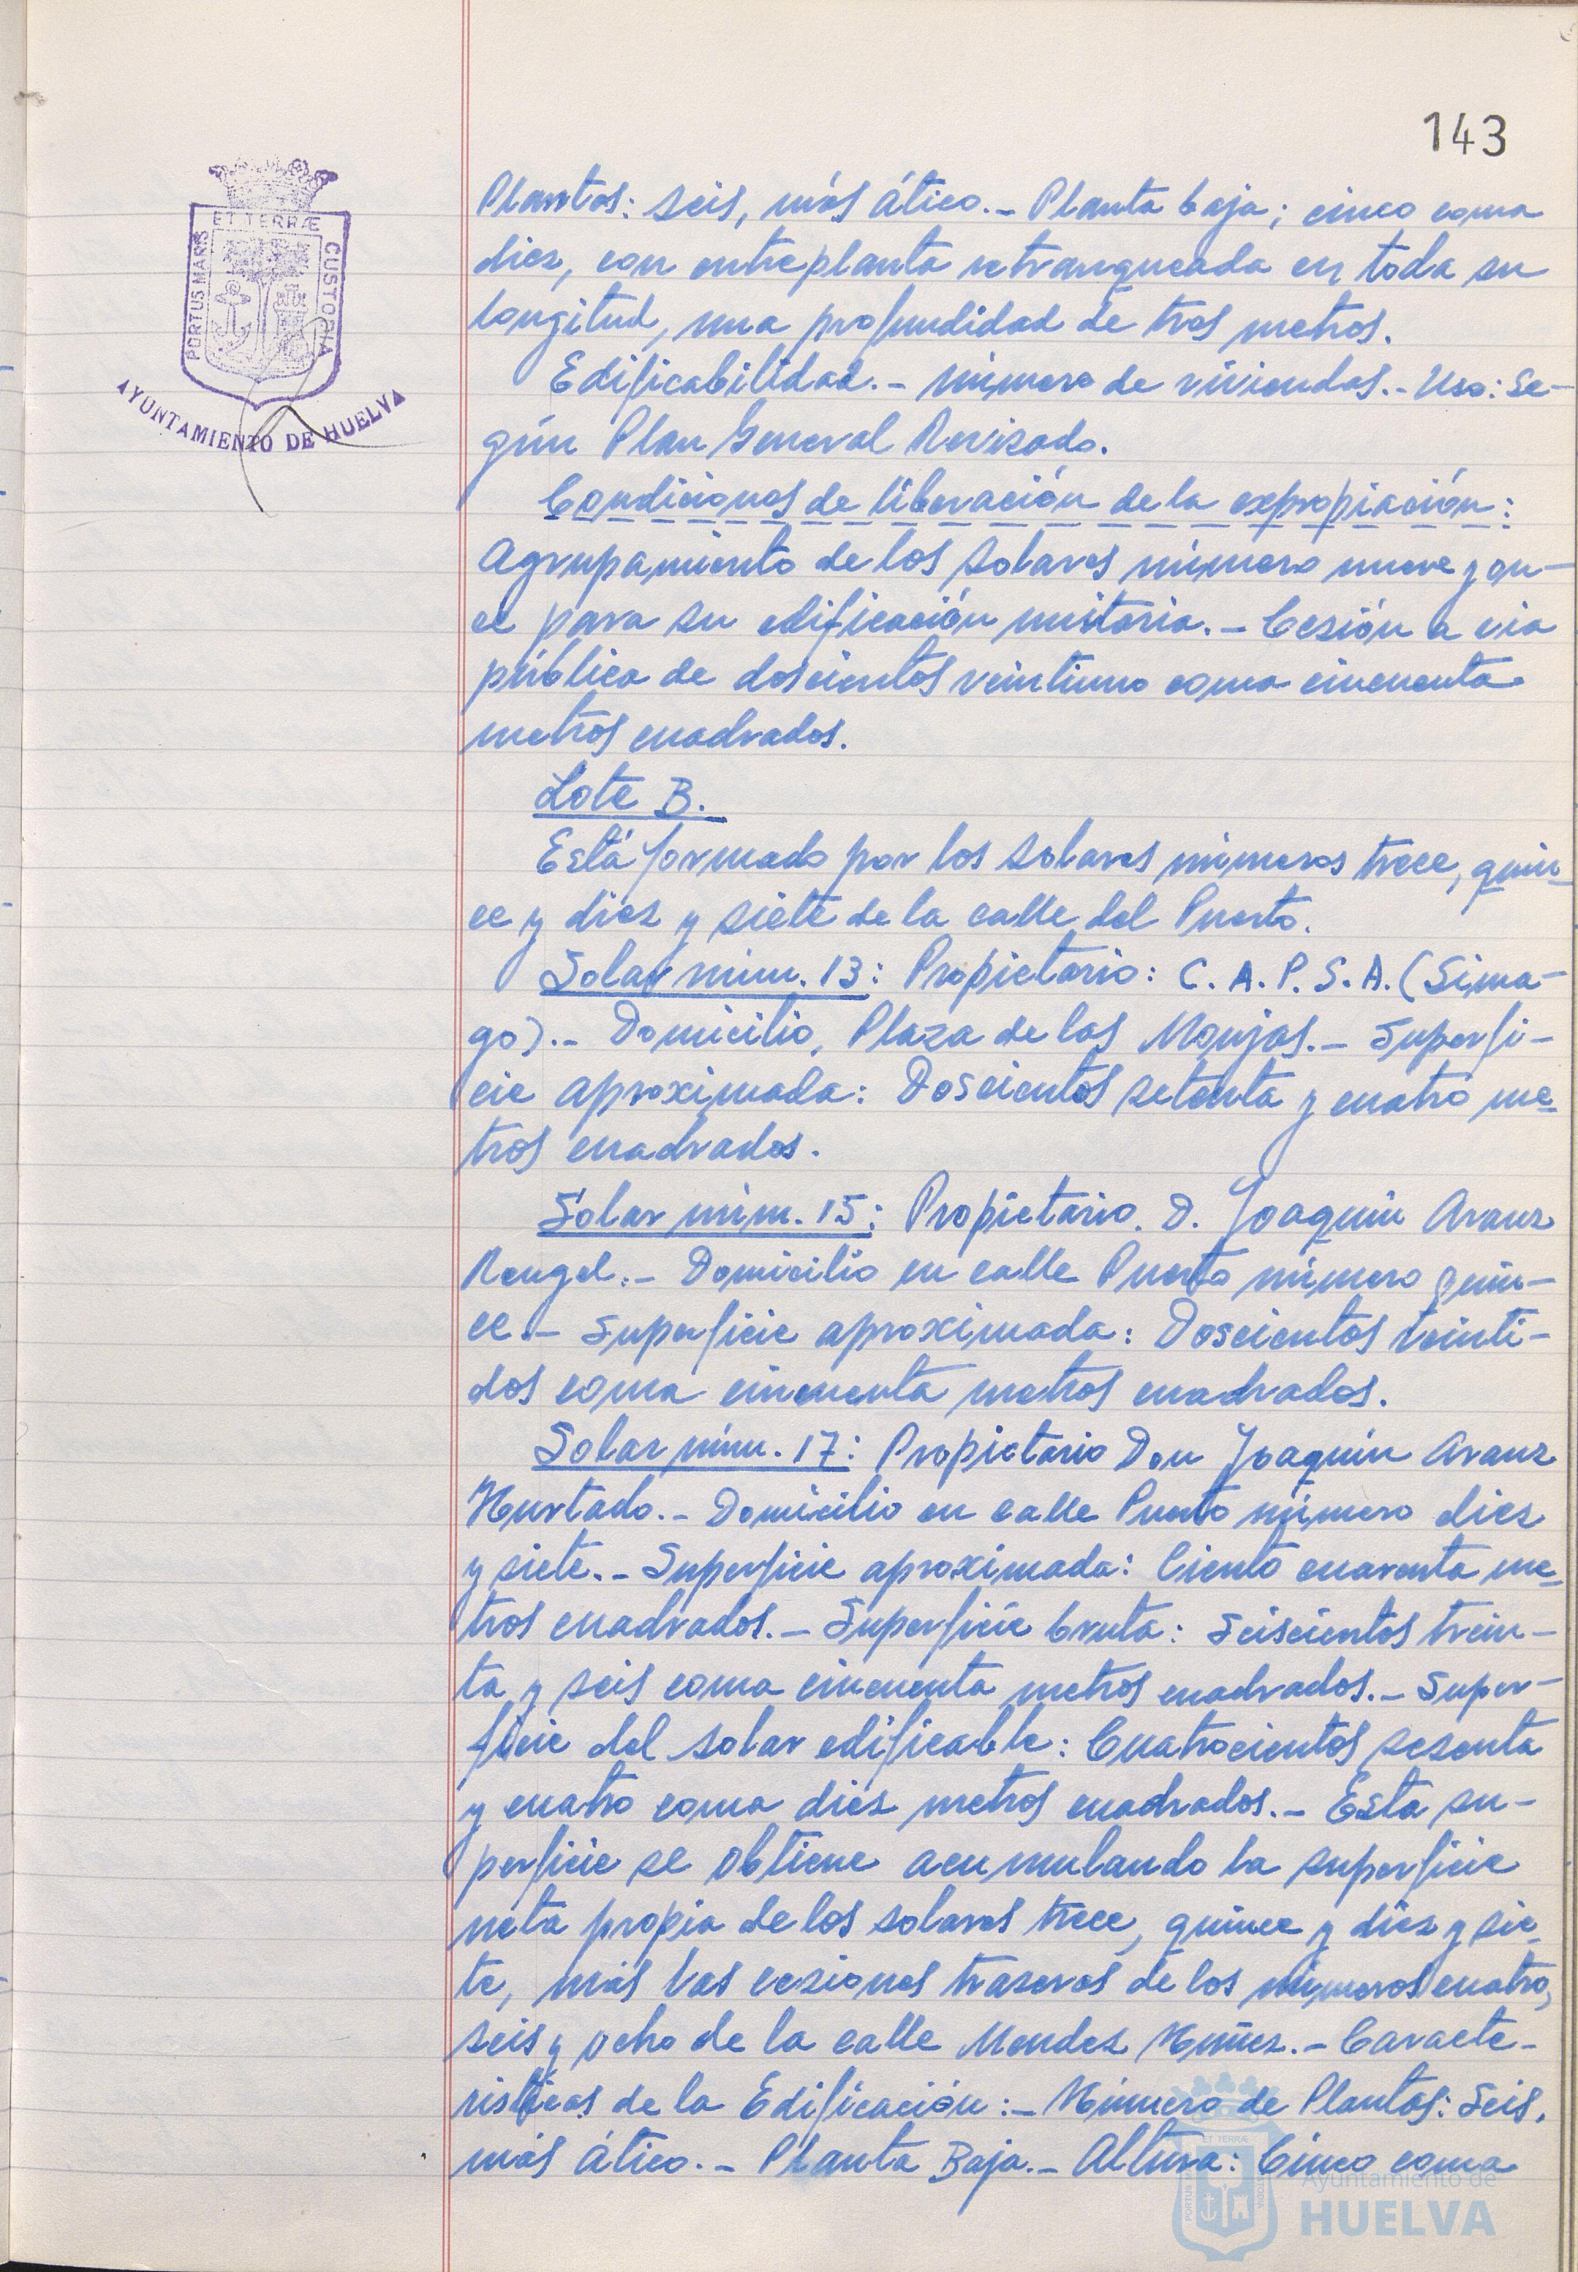 143
ET TERRÆ
PORTUS MARIS
CUSTODIA
AYUNTAMIENTO DE HUELVA
Plantas: seis, más ático.- Planta baja; cinco coma
diez, con entreplanta retranqueada en toda su
longitud, una profundidad de tres metros.
Edificabilidad.- número de viviendas.- Uso: Se-
gún Plan General Revisado.
Condiciones de liberación de la expropiación:
Agrupamiento de los solares número nueve y on-
ce para su edificación unitaria.- Cesión a via
pública de doscientos veintiuno coma cincuenta
metros cuadrados.
Lote B.
Está formado por los solares números trece, quin-
ce y diez y siete de la calle del Puerto.
Solar núm. 13: Propietario: C.A.P.S.A. (Sima-
go).- Domicilio, Plaza de las Monjas.- Superfi-
cie aproximada: Doscientos setenta y cuatro me-
tros cuadrados.
Solar núm. 15: Propietario. D. Joaquín Aranz
Rengel.- Domicilio en calle Puerto número quin-
ce.- Superficie aproximada: Doscientos veinti-
dos coma cincuenta metros cuadrados.
Solar núm. 17: Propietario Don Joaquín Aranz
Hurtado.- Domicilio en calle Puerto número diez
y siete.- Superficie aproximada: Ciento cuarenta me-
tros cuadrados.- Superficie bruta: Seiscientos trein-
ta y seis coma cincuenta metros cuadrados.- Super-
ficie del solar edificable: Cuatrocientos sesenta
y cuatro coma diez metros cuadrados.- Esta su-
perficie se obtiene acumulando la superficie
neta propia de los solares trece, quince y diez y sie-
te, más las cesiones traseras de los números cuatro,
seis y ocho de la calle Mendez Nuñez.- Caracte-
risticas de la Edificación:- Número de Plantas: Seis,
más ático.- Planta Baja.- Altura: Cinco coma
ET TERRÆ
PORTUS
CUSTODIA
Ayuntamiento de
HUELVA